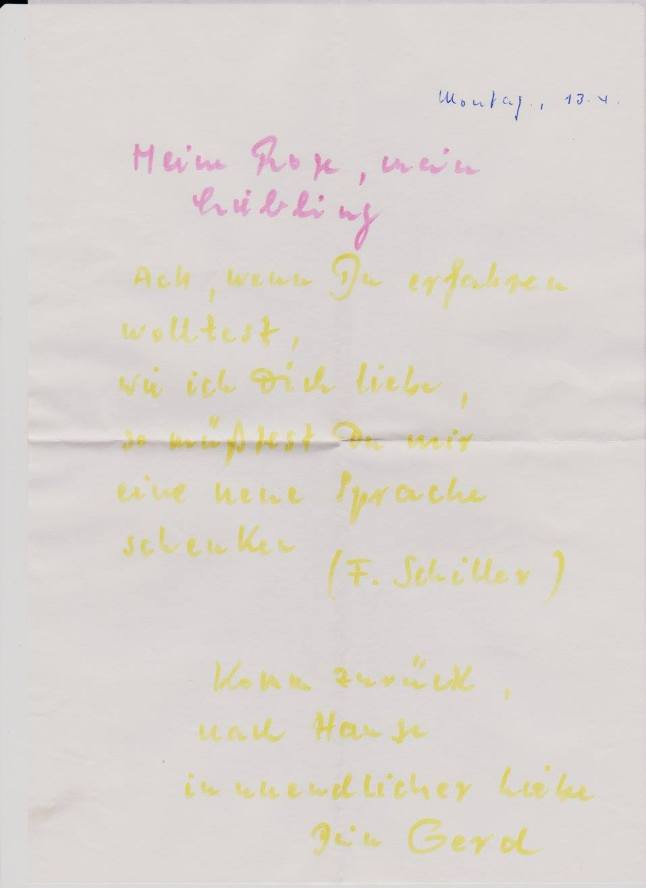 Montag, 13.4.
Meine Rose, mein
Liebling
Ach, wenn Du erfahren
wolltest,
wie ich Dich liebe,
so müßtest Du mir
eine neue Sprache
schenken
(F. Schiller)
Komm zurück,
nach Hause
in unendlicher Liebe
Dein Gerd